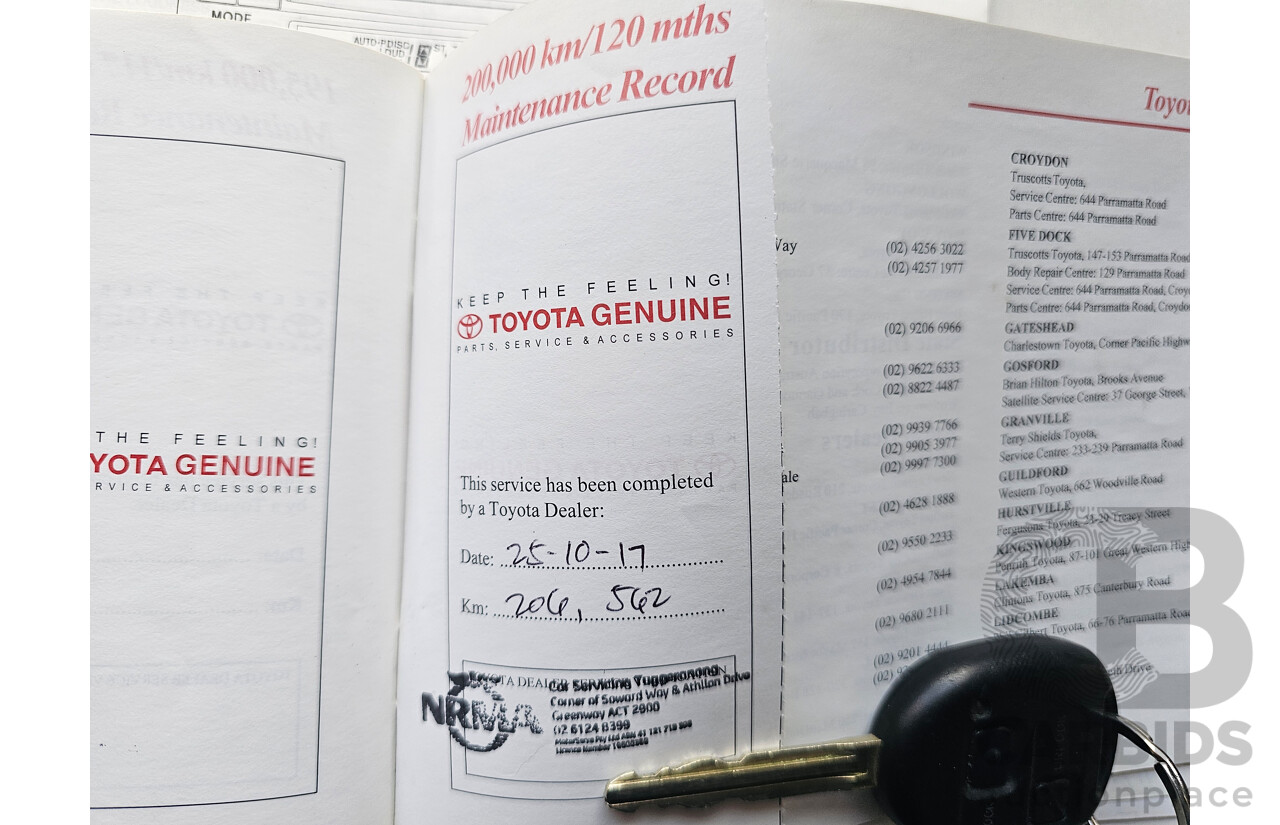 MODE
AUTO-P.DISC
LOUD
ST,
200,000 km/120 mths
Maintenance Record
KEEP THE FEELING!
TOYOTA GENUINE
PARTS, SERVICE & ACCESSORIES
This service has been completed
by a Toyota Dealer:
Date: 25-10-17
Km: 206, 562
NRMA
Car Servicing Tuggeranong
Corner of Soward Way & Athllon Drive
Greenway ACT 2900
02 6124 8399
THE FEELING!
YOTA GENUINE
RVICE & ACCESSORIES
Toyo
Way
(02) 4256 3022
(02) 4257 1977
(02) 9206 6966
(02) 9622 6333
(02) 8822 4487
(02) 9939 7766
(02) 9905 3977
(02) 9997 7300
ale
(02) 4628 1888
(02) 9550 2233
(02) 4954 7844
(02) 9680 2111
(02) 9201 4444
CROYDON
Truscotts Toyota,
Service Centre: 644 Parramatta Road
Parts Centre: 644 Parramatta Road
FIVE DOCK
Truscotts Toyota, 147-153 Parramatta Road
Body Repair Centre: 129 Parramatta Road
Service Centre: 644 Parramatta Road, Croy
Parts Centre: 644 Parramatta Road, Croydo
GATESHEAD
Charlestown Toyota, Corner Pacific Highw
GOSFORD
Brian Hilton Toyota, Brooks Avenue
Satellite Service Centre: 37 George Street,
GRANVILLE
Terry Shields Toyota,
Service Centre: 233-239 Parramatta Road
GUILDFORD
Western Toyota, 662 Woodville Road
HURSTVILLE
Fergusons Toyota, 23-29 Treacy Street
KINGSWOOD
Penrith Toyota, 87-101 Great Western High
LAKEMBA
Toyota, 875 Canterbury Road
LIDCOMBE
Toyota, 66-76 Parramatta Road
Drive